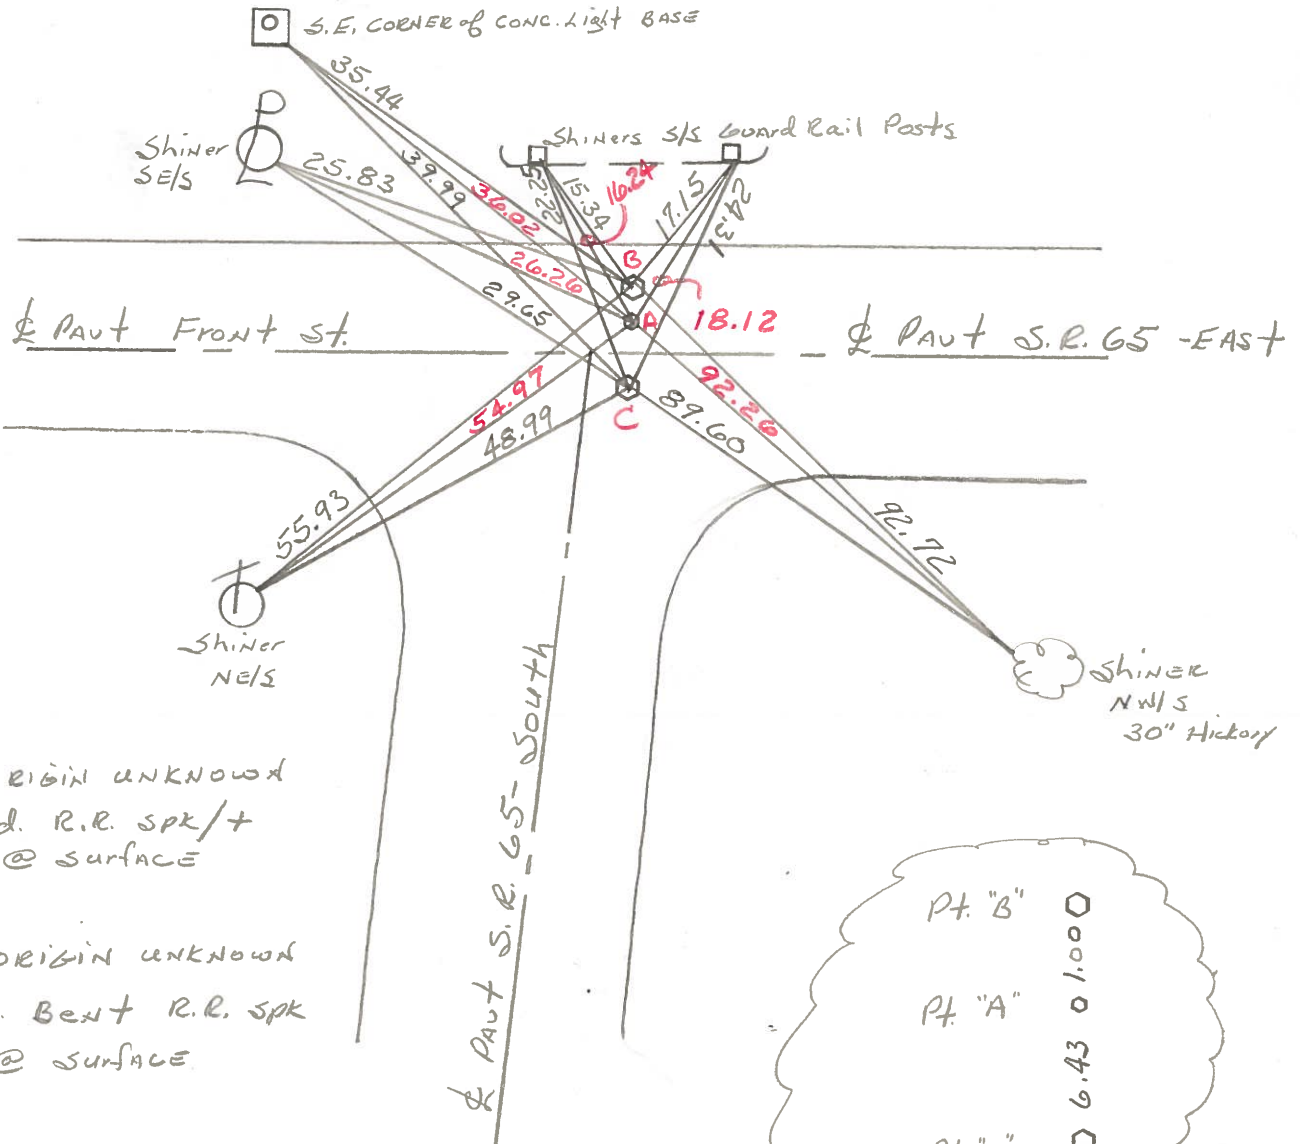 S.E. CORNER of CONC. Light BASE
35.44
Shiner
SE/S
Shiners S/S Guard Rail Posts
25.83
39.99
36.02
22.22
15.34
16.24
17.15
24.31
26.26
29.65
B
A
18.12
℄ PAVt Front St.
℄ PAVt S.R. 65 -EAST
54.97
48.99
C
92.26
89.60
55.93
92.72
Shiner
NE/S
SHINER
NW/S
30" Hickory
℄ PAVt S.R. 65- South
RIGIN UNKNOWN
d. R.R. spk/+
@ SurfACE
ORIGIN UNKNOWN
. Bent R.R. spk
@ SurfACE
Pt. "B"
1.00
Pt. "A"
6.43